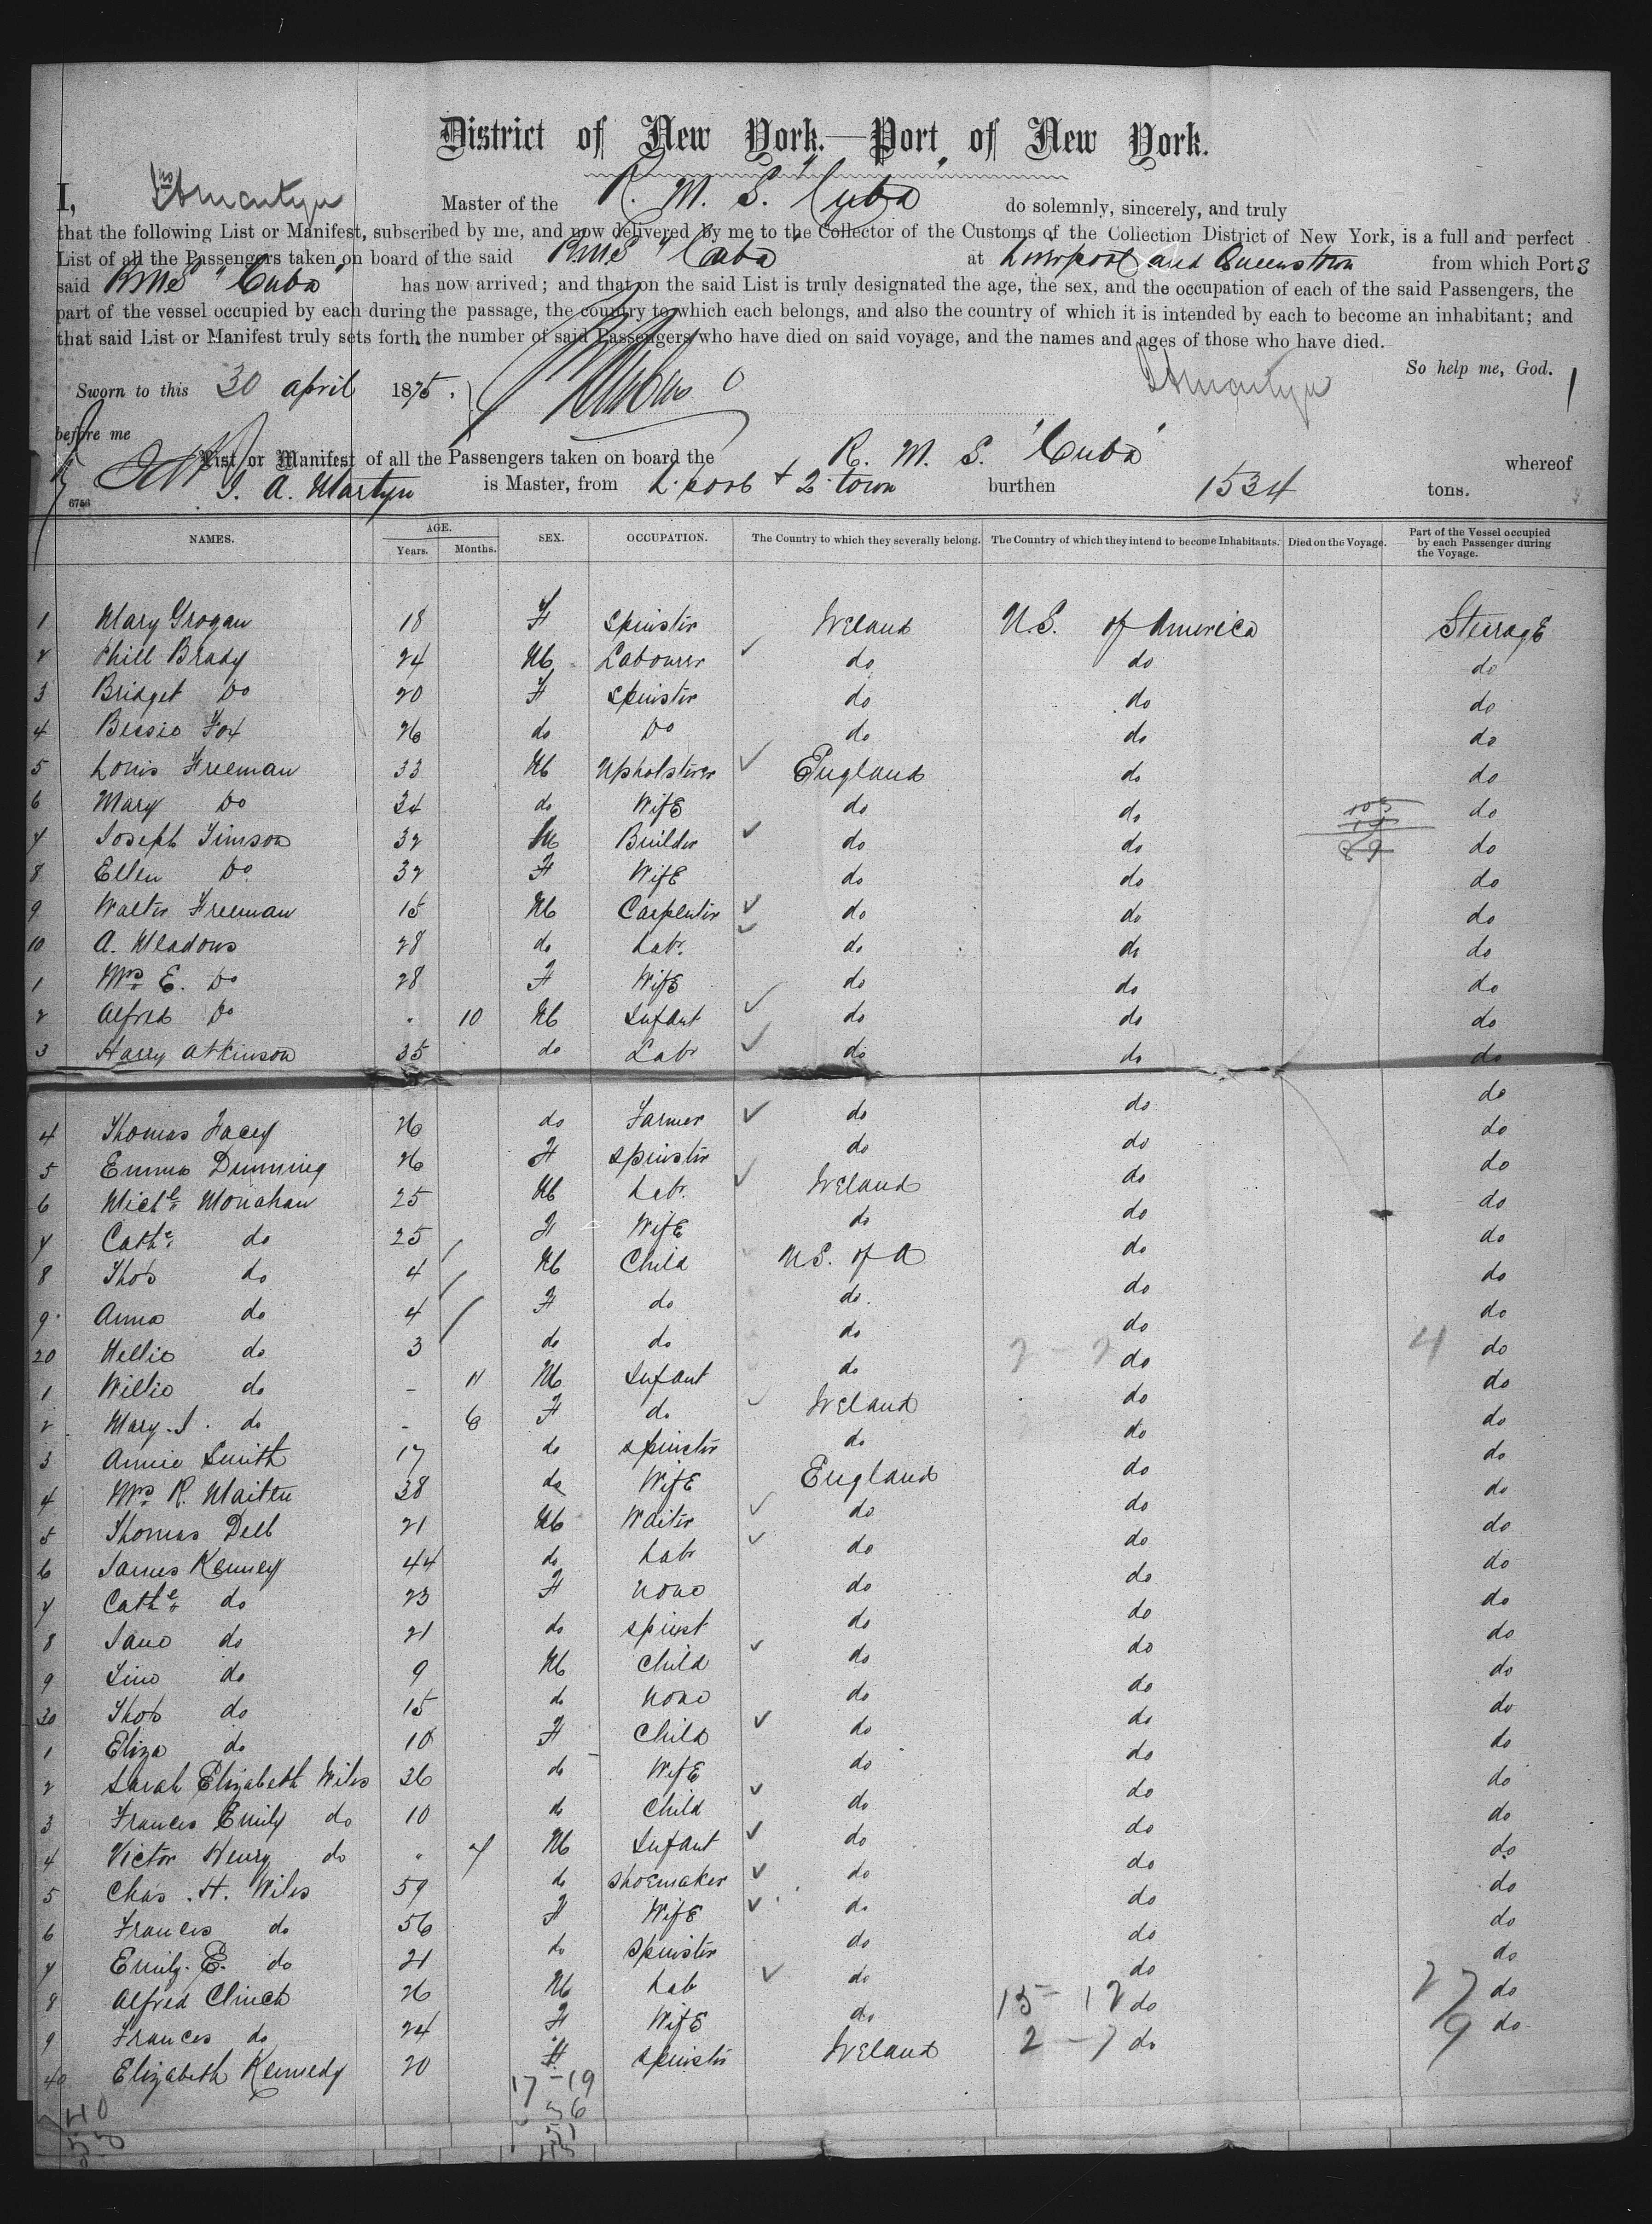 District of New York.—Port of New York.
I, Master of the R. M. S. "Cuba" do solemnly, sincerely, and truly
that the following List or Manifest, subscribed by me, and now delivered by me to the Collector of the Customs of the Collection District of New York, is a full and perfect
List of all the Passengers taken on board of the said RMS "Cuba" at Liverpool and Queenstown from which Ports
said RMS "Cuba" has now arrived; and that on the said List is truly designated the age, the sex, and the occupation of each of the said Passengers, the
part of the vessel occupied by each during the passage, the country to which each belongs, and also the country of which it is intended by each to become an inhabitant; and
that said List or Manifest truly sets forth the number of said Passengers who have died on said voyage, and the names and ages of those who have died.
So help me, God.
Sworn to this 30 april 1875.
before me
List or Manifest of all the Passengers taken on board the R. M. S. "Cuba" whereof
J. A. Martyn is Master, from L.pool + Q.town burthen 1534 tons.
6756
NAMES. AGE. Years. Months. SEX. OCCUPATION. The Country to which they severally belong. The Country of which they intend to become Inhabitants. Died on the Voyage. Part of the Vessel occupied by each Passenger during the Voyage.
1 Mary Grogan 18 F Spinster Ireland U.S. of America Steerage
2 Phill Brady 24 M Labourer do do do
3 Bridget Do 20 F Spinster do do do
4 Bessie Fox 26 do Do do do do
5 Louis Freeman 33 M Upholsterer England do do
6 Mary Do 34 do Wife do do do
7 Joseph Timson 32 M Builder do do do
8 Ellen Do 32 F Wife do do do
9 Walter Freeman 15 M Carpenter do do do
10 A. Meadows 28 do Labr. do do do
1 Mrs E. Do 28 F Wife do do do
2 Alfred Do " 10 M Infant do do do
3 Harry Atkinson 35 do Labr do do do
4 Thomas Facey 26 do Farmer do do do
5 Emma Dunning 26 F Spinster do do do
6 Michl Monahan 25 M Labr. Ireland do do
7 Cathe do 25 F Wife do do do
8 Thos do 4 M Child U.S. of A do do
9 Anna do 4 F do do do do
20 Nellie do 3 do do do do do
1 Willie do - 11 M Infant do do do
2 Mary.J. do - 6 F do Ireland do do
3 Annie Smith 17 do Spinster do do do
4 Mrs R. Maiten 38 do Wife England do do
5 Thomas Dell 21 M Waiter do do do
6 James Kenney 44 do Labr do do do
7 Cathe do 23 F None do do do
8 Jane do 21 do Spinst do do do
9 do 9 M Child do do do
30 Thos do 15 do None do do do
1 Eliza do 10 F Child do do do
2 Sarah Elizabeth Wiles 36 do Wife do do do
3 Frances Emily do 10 do Child do do do
4 Victor Henry do " 7 M Infant do do do
5 Chas. H. Wiles 59 do Shoemaker do do do
6 Frances do 56 F Wife do do do
7 Emily. E. do 21 do Spinster do do do
8 Alfred Clinch 26 M Lab do do do
9 Frances do 24 F Wife do do do
40 Elizabeth Kennedy 20 F Spinster Ireland do do
17-19